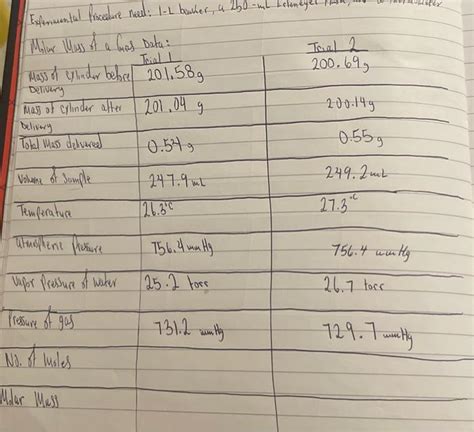 Experimental Procedure need: 1-L beaker, a 250-mL Erlenmeyer
Molar Mass of a Gas Data:
Trial 1 Trial 2
Mass of cylinder before Delivery 201.58g 200.69g
Mass of cylinder after Delivery 201.04 g 200.14g
Total Mass delivered 0.54g 0.55g
Volume of Sample 247.9mL 249.2mL
Temperature 26.3°C 27.3°C
Atmospheric Pressure 756.4 mmHg 756.4 mmHg
Vapor Pressure of Water 25.2 torr 26.7 torr
Pressure of gas 731.2 mmHg 729.7 mmHg
No. of Moles
Molar Mass